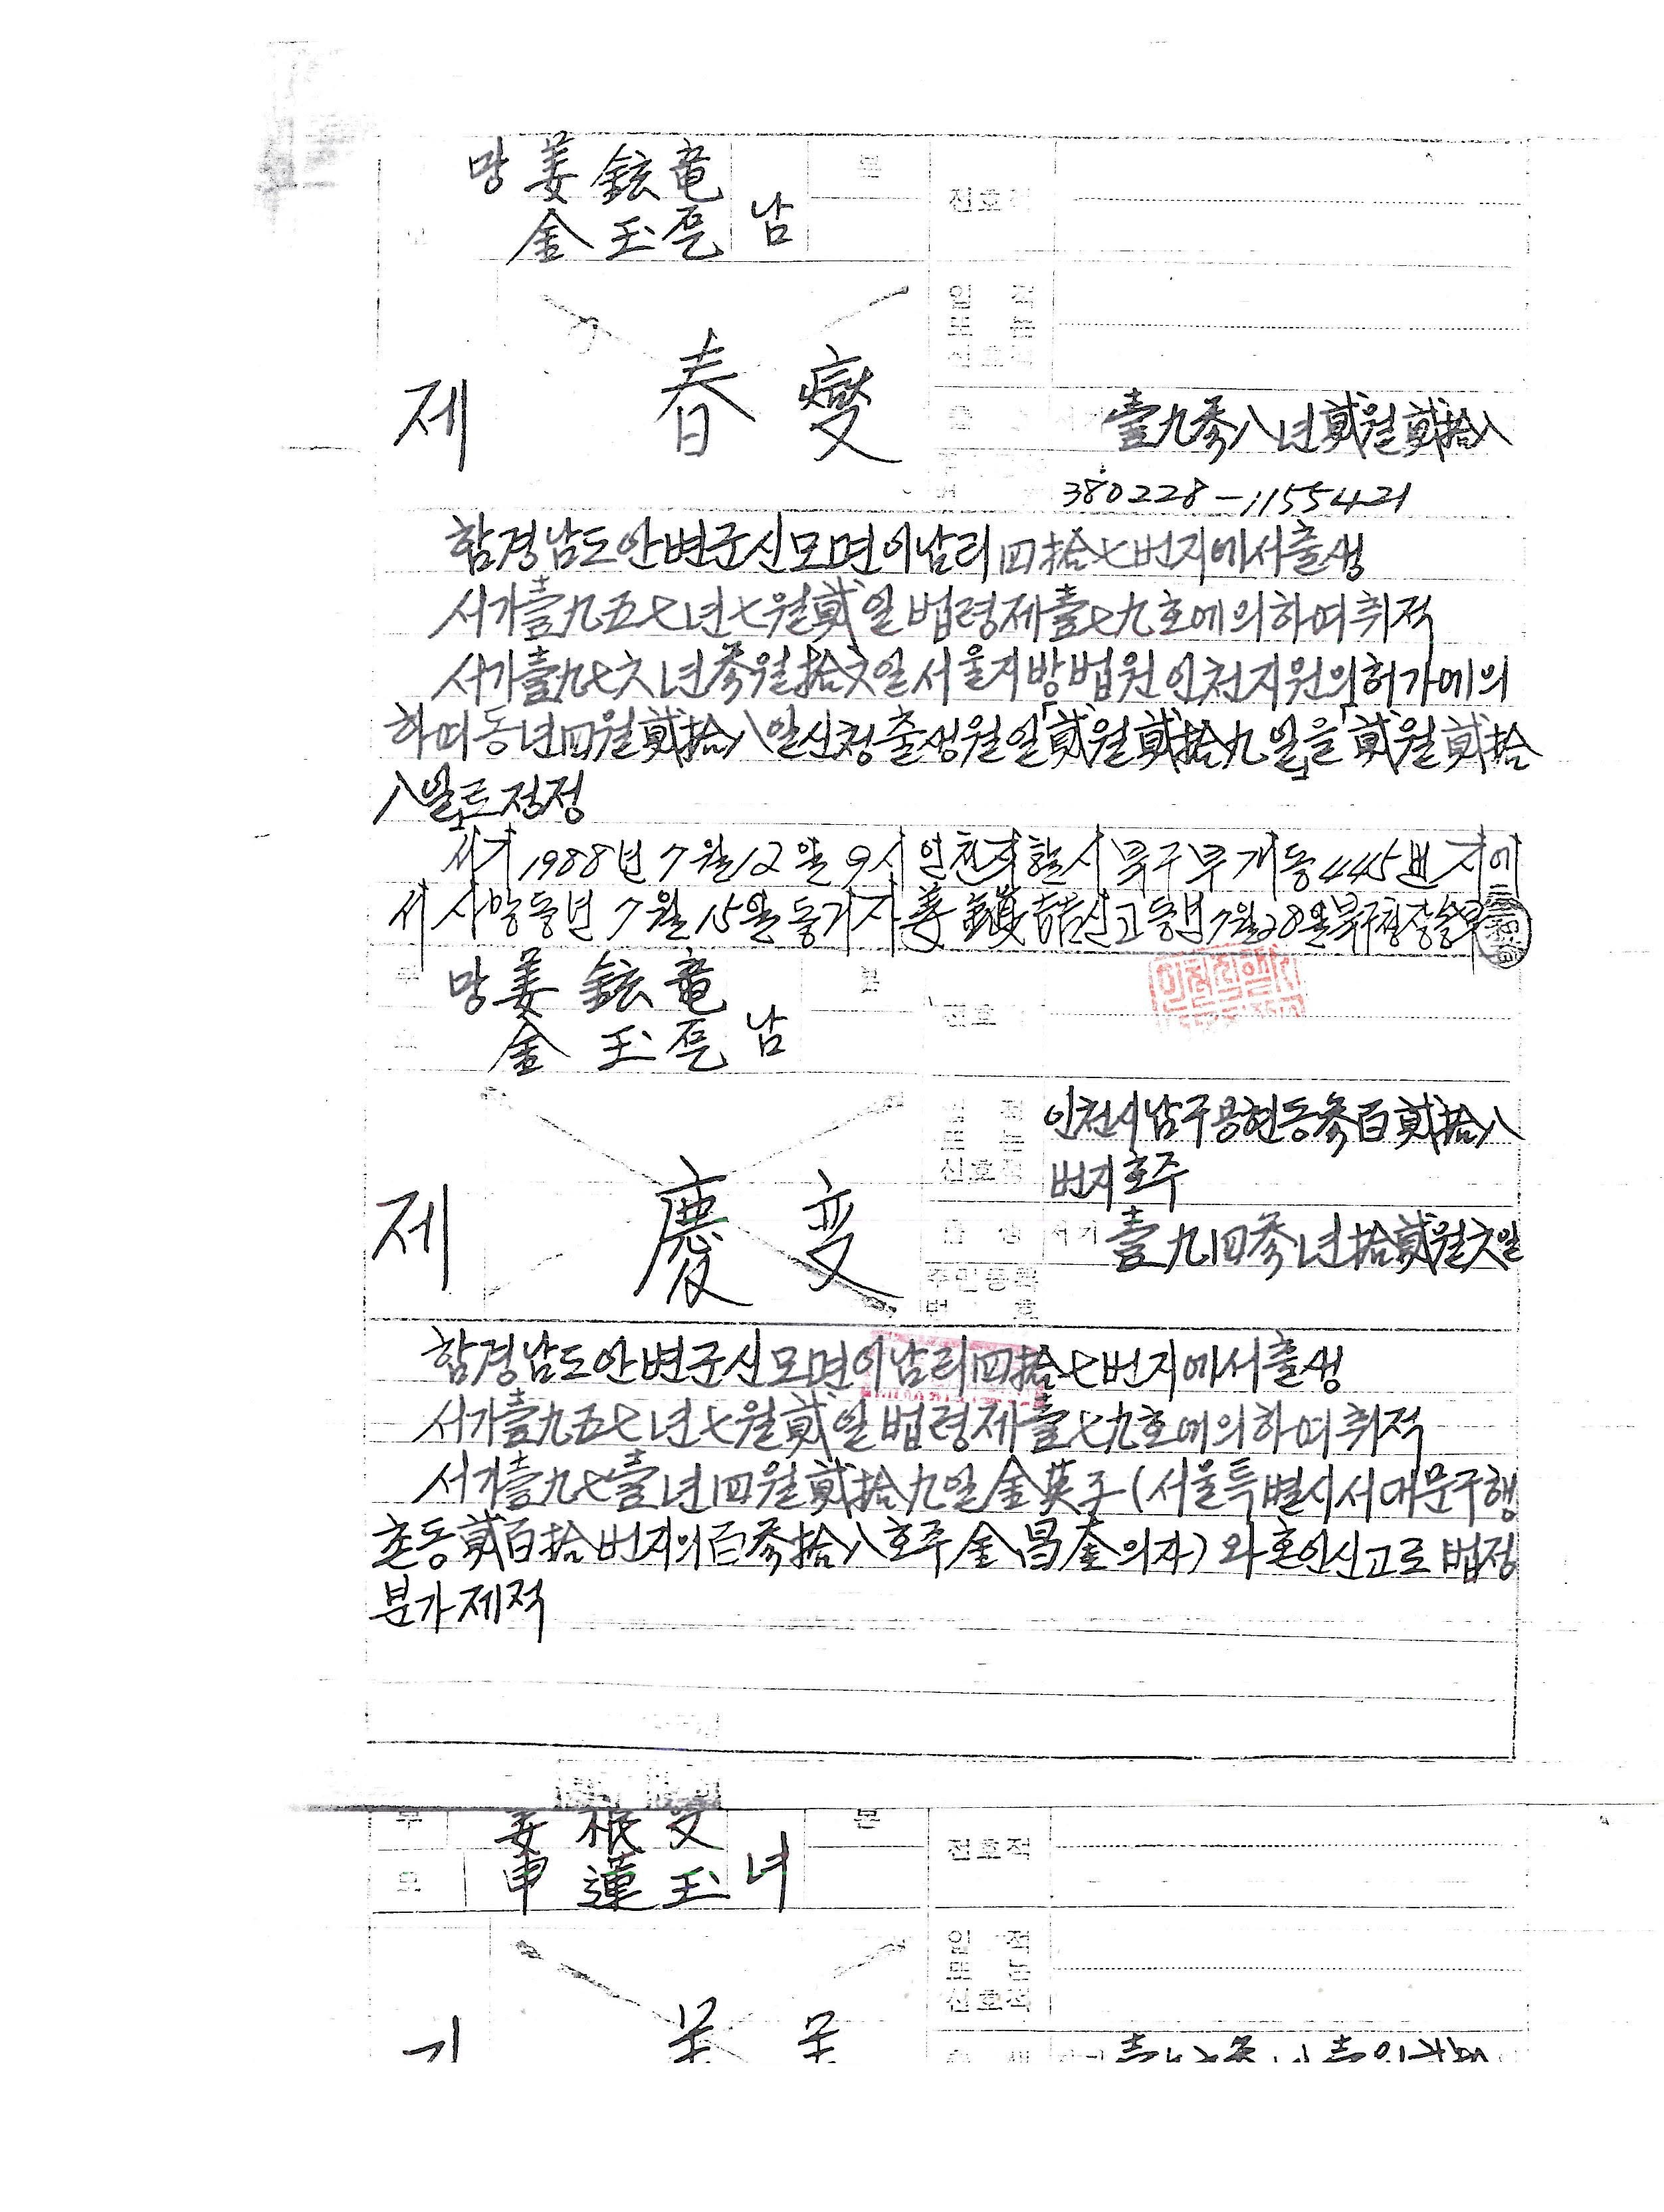 망 姜 鉉 竜
金 玉 남
본
전호적
입 적
또 는
신호적
제 春 燮
壹九參八년貳월貳拾八
380228-1155421
함경남도안변군신모면이남리四拾七번지에서출생
서기壹九五七년七월貳일법령제壹七九호에의하여취적
서기壹九七六년參월拾六일서울지방법원인천지원의허가에의
하여동년四월貳拾八일신청출생월일「貳월貳拾九일」을「貳월貳拾
八일」로정정
서기1988년7월12일9시인천직할시북구부개동445번지에
서사망동년7월15일동거자姜 喆신고동년7월20일북구청장송부
망 姜 鉉 竜
金 玉 남
전호
인천시남구용현동參百貳拾八
신호적
번지호주
제 慶 変
서기 壹九四參년拾貳월六일
주민등록
번 호
함경남도안변군신모면이남리四拾七번지에서출생
서기壹九五七년七월貳일법령제壹七九호에의하여취적
서기壹九七壹년四월貳拾九일金英子(서울특별시서대문구행
촌동貳百拾번지의百參拾八호주金昌奎의자)와혼인신고로법정
분가제적
부 姜 根 변 본
전호적
모 申 蓮 玉 녀
입 적
또 는
신호적